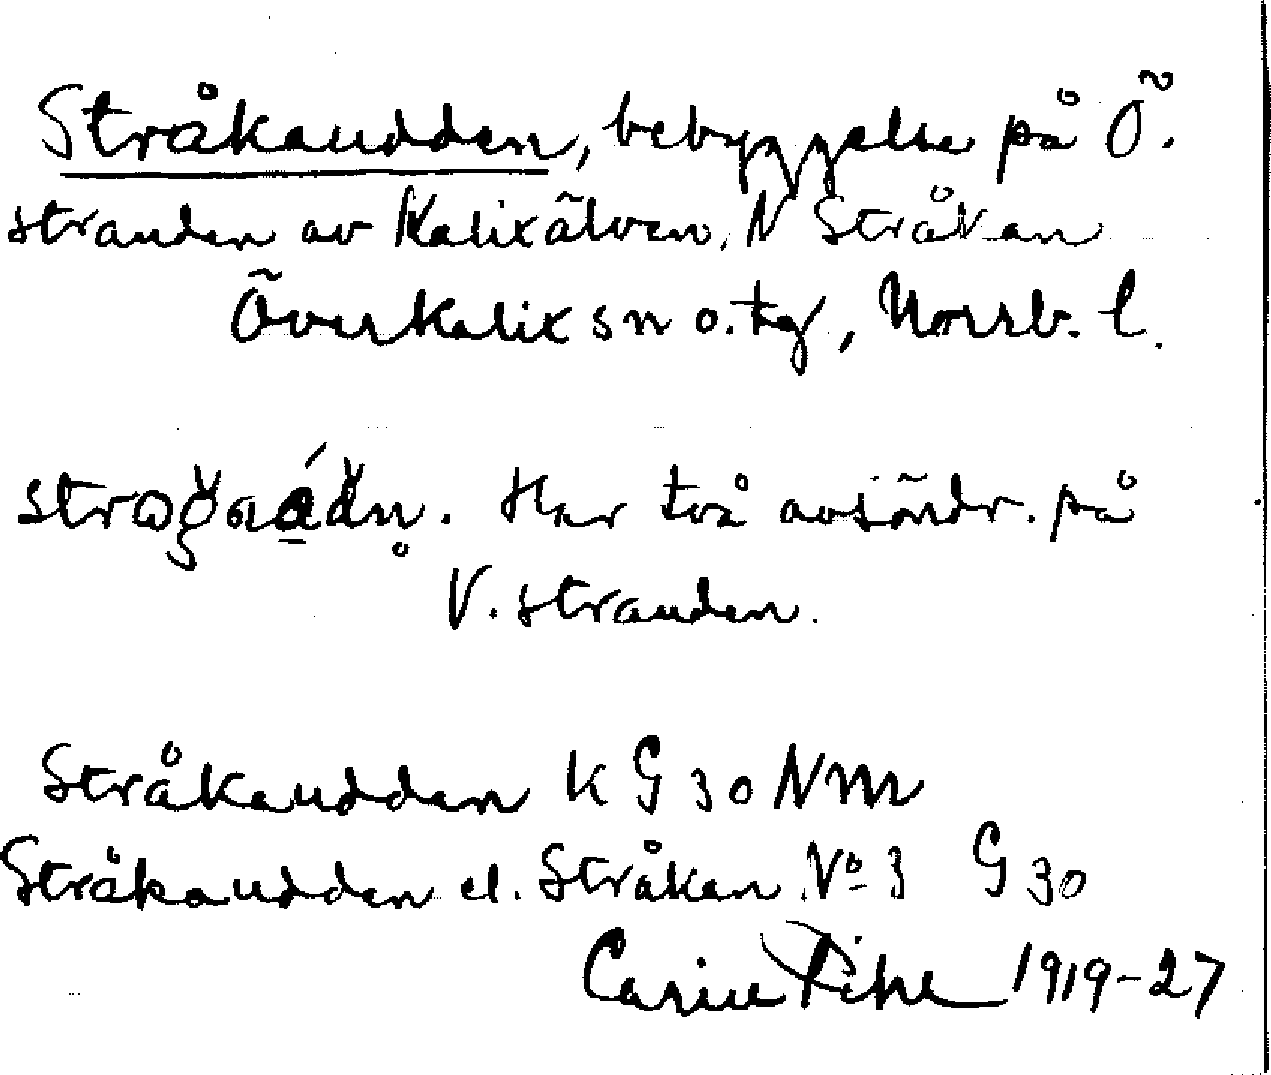 Stråkaudden, bebyggelse på Ö.
stranden av Kalixälven, N Stråkan
Överkalix sn o. tg, Norrb. l.
Har två avsöndr. på
V. stranden.
Stråkaudden k G 30 N m
Stråkaudden el. Stråkan No 3 G 30
Carin Pihl 1919-27